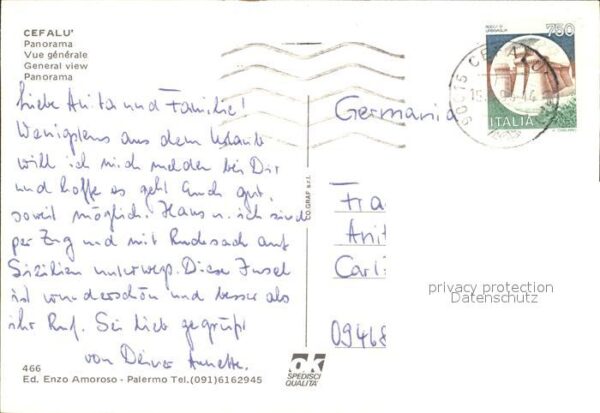 CEFALU'
Panorama
Vue générale
General view
Panorama
Liebe Anita und Familie!
Wenigstens aus dem Urlaub
will ich mich melden bei Dir
und hoffe es geht Euch gut,
soweit möglich. Hans u. ich sind
per Zug und mit Rucksack auf
Sizilien unterwegs. Diese Insel
ist wunderschön und besser als
ihr Ruf. Sei lieb gegrüßt
von Deiner Annette.
466
Ed. Enzo Amoroso - Palermo Tel.(091)6162945
CO.GRAF s.r.l.
OK
SPEDISCI
QUALITA'
750
ITALIA
90015 CEFALU
Germania
Fra
Anit
Carl
09468
privacy protection
Datenschutz